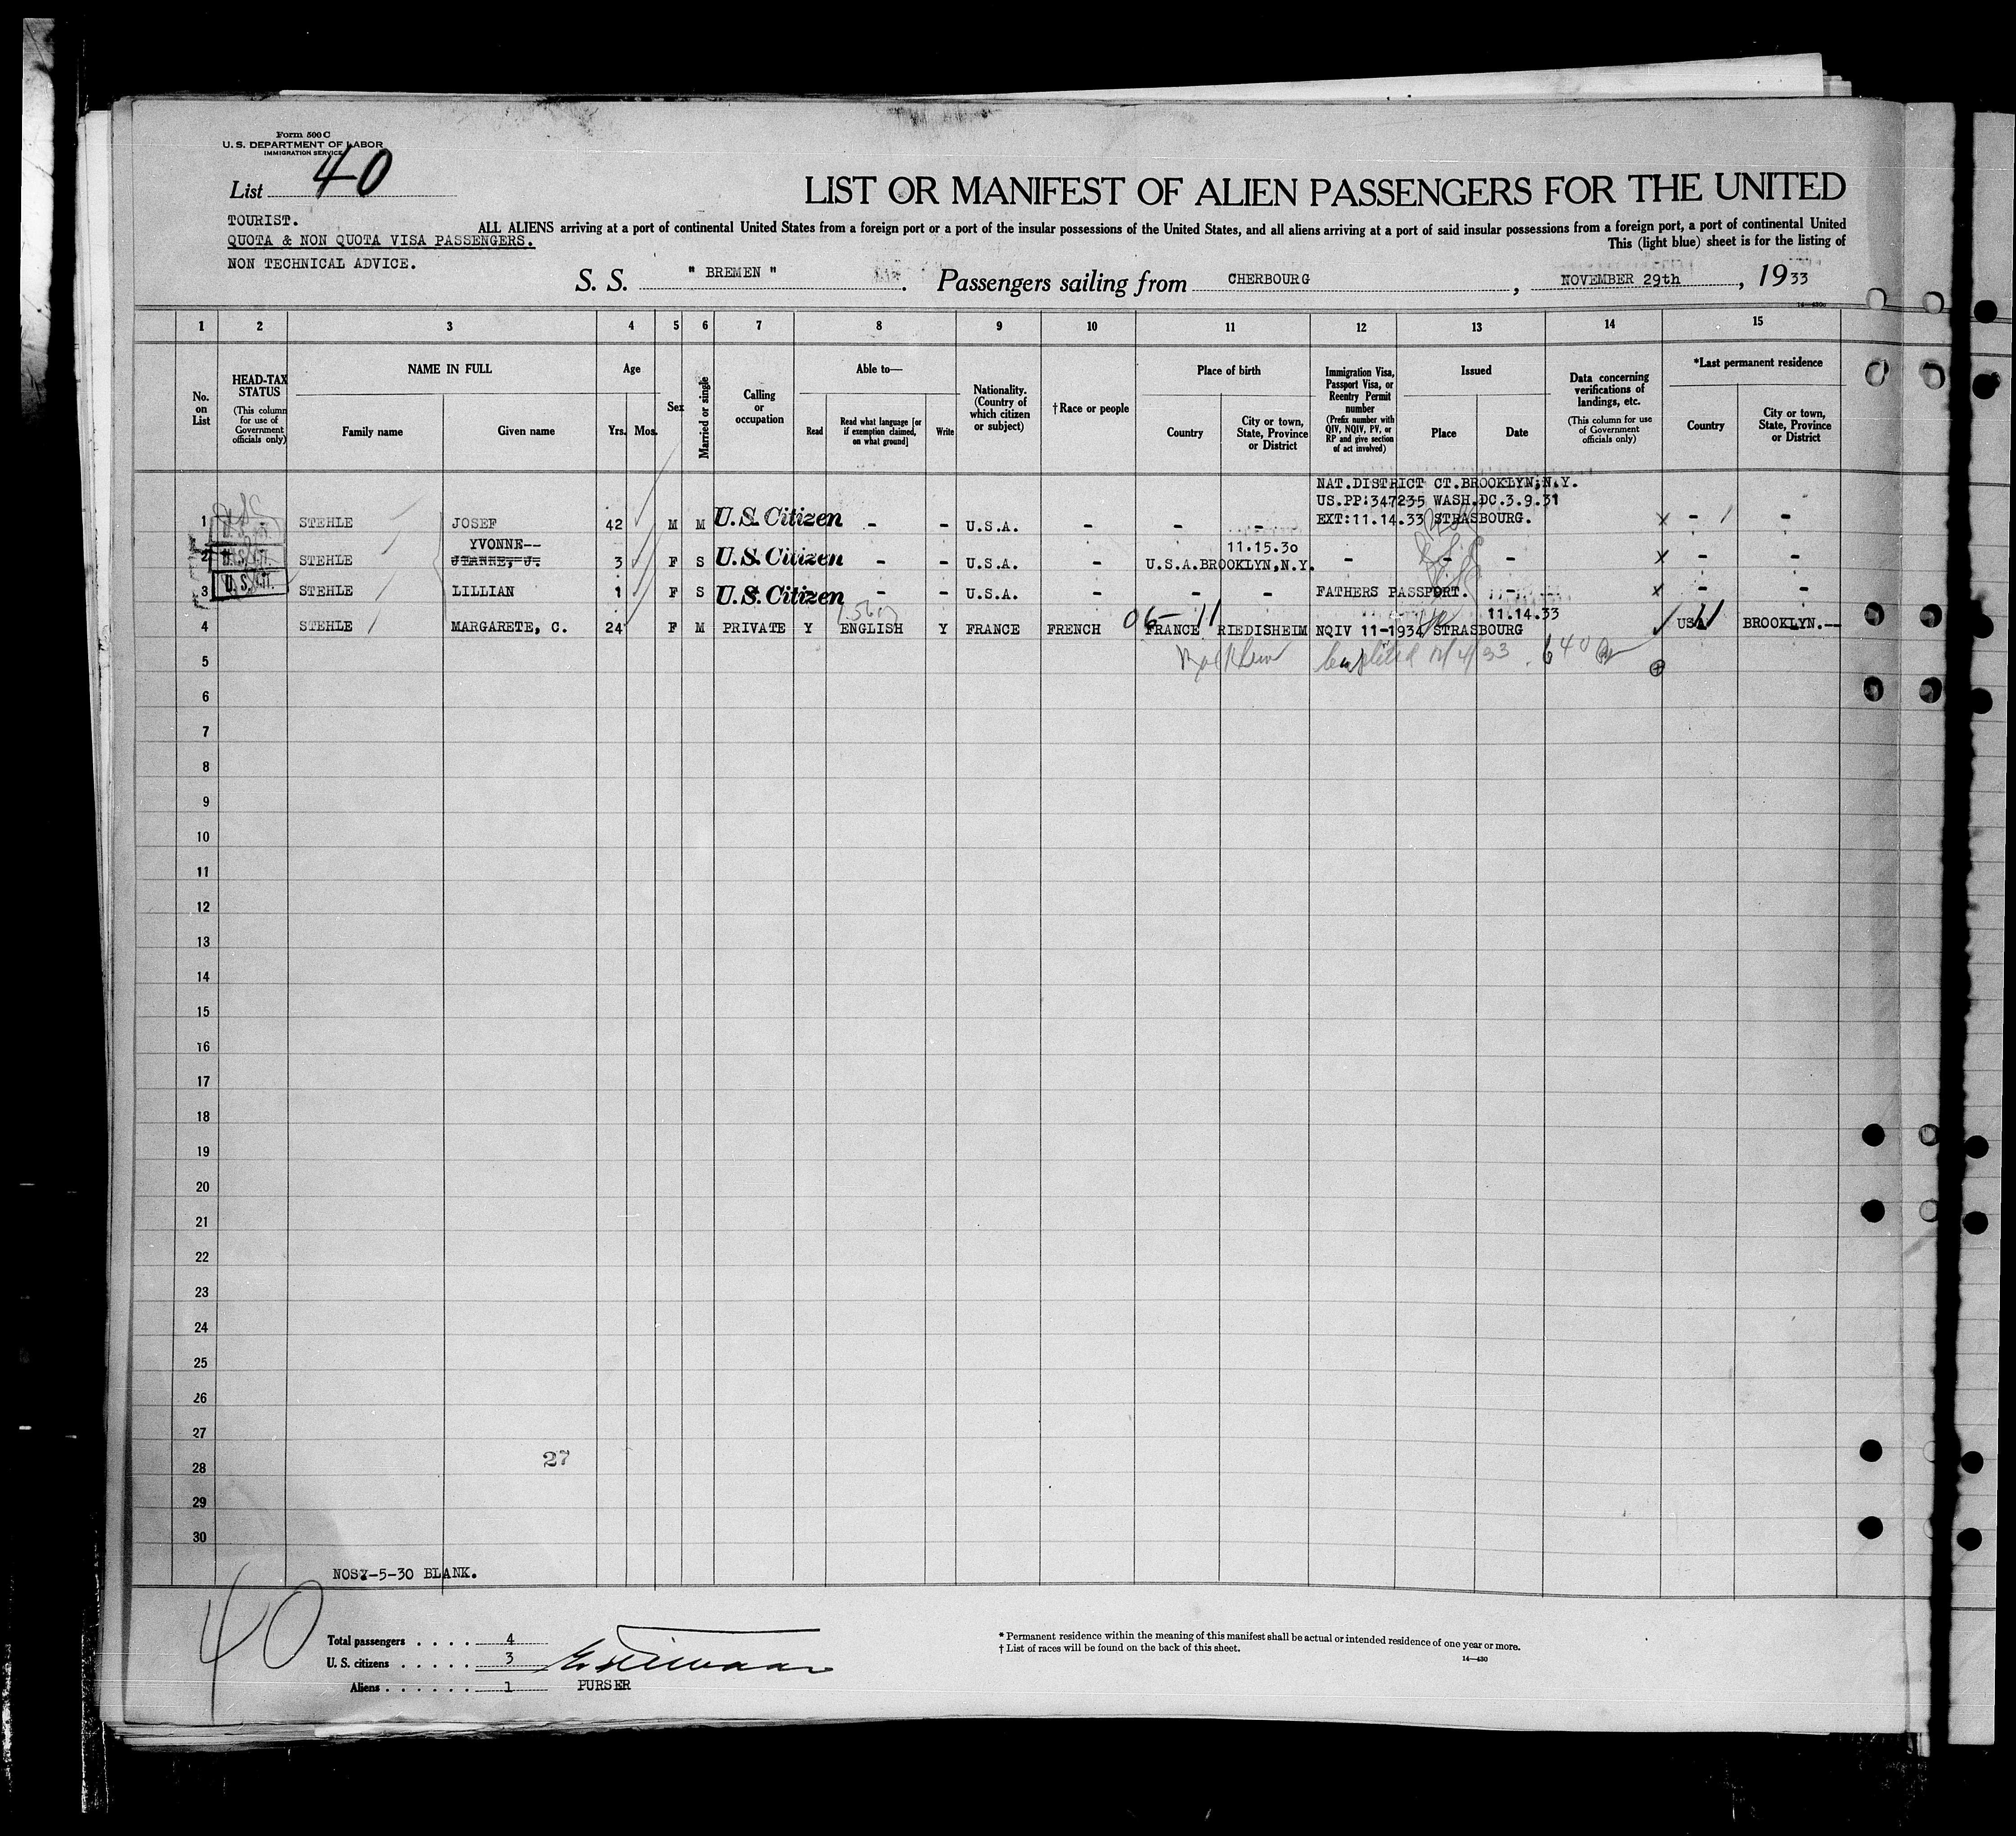 Form 500 C
U. S. DEPARTMENT OF LABOR
IMMIGRATION SERVICE
List 40
LIST OR MANIFEST OF ALIEN PASSENGERS FOR THE UNITED
TOURIST.
QUOTA & NON QUOTA VISA PASSENGERS.
NON TECHNICAL ADVICE.
ALL ALIENS arriving at a port of continental United States from a foreign port or a port of the insular possessions of the United States, and all aliens arriving at a port of said insular possessions from a foreign port, a port of continental United
This (light blue) sheet is for the listing of
S. S. " BREMEN " . Passengers sailing from CHERBOURG , NOVEMBER 29th , 1933
1 2 3 4 5 6 7 8 9 10 11 12 13 14 15
No. on List
HEAD-TAX STATUS
(This column for use of Government officials only)
NAME IN FULL
Family name
Given name
Age
Yrs.
Mos.
Sex
Married or single
Calling or occupation
Able to—
Read
Read what language [or if exemption claimed, on what ground]
Write
Nationality. (Country of which citizen or subject)
†Race or people
Place of birth
Country
City or town, State, Province or District
Immigration Visa, Passport Visa, or Reentry Permit number
(Prefix number with QIV, NQIV, PV, or RP and give section of act involved)
Issued
Place
Date
Data concerning verifications of landings, etc.
(This column for use of Government officials only)
*Last permanent residence
Country
City or town, State, Province or District
NAT.DISTRICT CT.BROOKLYN,N.Y.
US.PP:347235 WASH.DC.3.9.31
1 STEHLE JOSEF 42 M M U.S. Citizen - - U.S.A. - - - EXT:11.14.33 STRASBOURG. x - -
YVONNE-- 11.15.30
2 U.S. CIT. STEHLE JEANNE, J. 3 F S U.S. Citizen - - U.S.A. - U.S.A. BROOKLYN,N.Y. - - - x - -
3 U.S. CIT. STEHLE LILLIAN 1 F S U.S. Citizen - - U.S.A. - - - FATHERS PASSPORT. - x - -
06-11 11.14.33
4 STEHLE MARGARETE, C. 24 F M PRIVATE Y ENGLISH Y FRANCE FRENCH FRANCE RIEDISHEIM NQIV 11-1934 STRASBOURG USA BROOKLYN.--
5
6
7
8
9
10
11
12
13
14
15
16
17
18
19
20
21
22
23
24
25
26
27
27
28
29
30
NOS:-5-30 BLANK.
40
Total passengers . . . . 4
U. S. citizens . . . . . 3
Aliens . . . . . . 1
PURSER
* Permanent residence within the meaning of this manifest shall be actual or intended residence of one year or more.
† List of races will be found on the back of this sheet.
14—430